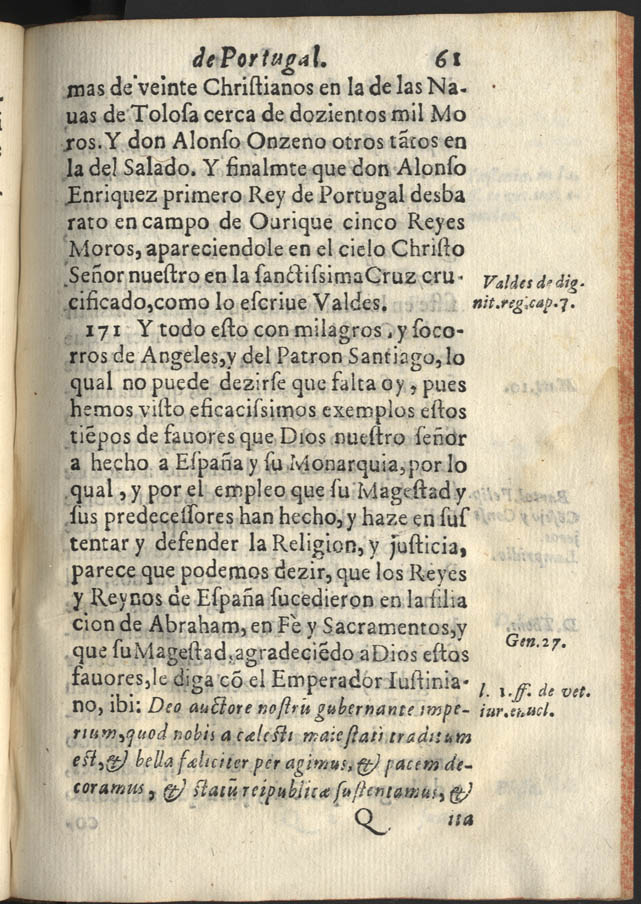 de Portugal. 61
mas de veinte Chriſtianos en la de las Na-
uas de Toloſa cerca de dozientos mil Mo
ros. Y don Alonſo Onzeno otros tãtos en
la del Salado. Y finalmte que don Alonſo
Enriquez primero Rey de Portugal desba
rato en campo de Ourique cinco Reyes
Moros, apareciendole en el cielo Chriſto
Señor nueſtro en la ſanctiſsima Cruz cru-
cificado, como lo eſcriue Valdes.
Valdes de dig-
nit. reg. cap. 7.
171 Y todo eſto con milagros, y ſoco-
rros de Angeles, y del Patron Santiago, lo
qual no puede dezirſe que falta oy, pues
hemos viſto eficaciſsimos exemplos eſtos
tiẽpos de fauores que Dios nueſtro ſeñor
a hecho a Eſpaña y ſu Monarquia, por lo
qual, y por el empleo que ſu Mageſtad y
ſus predeceſſores han hecho, y haze en ſuſ
tentar y defender la Religion, y juſticia,
parece que podemos dezir, que los Reyes
y Reynos de Eſpaña ſucedieron en la filia
cion de Abraham, en Fè y Sacramentos, y
Gen. 27.
que ſu Mageſtad, agradeciẽdo a Dios eſtos
fauores, le diga cõ el Emperador Iuſtinia-
l. 1. ff. de vet.
iur. enucl.
no, ibi: Deo auctore noſtrũ gubernante impe-
rium, quod nobis a cæleſti maieſtati traditum
eſt, & bella fæliciter per agimus, & pacem de-
coramus, & ſtatũ reipublicæ ſuſtentamus, &
Q ita